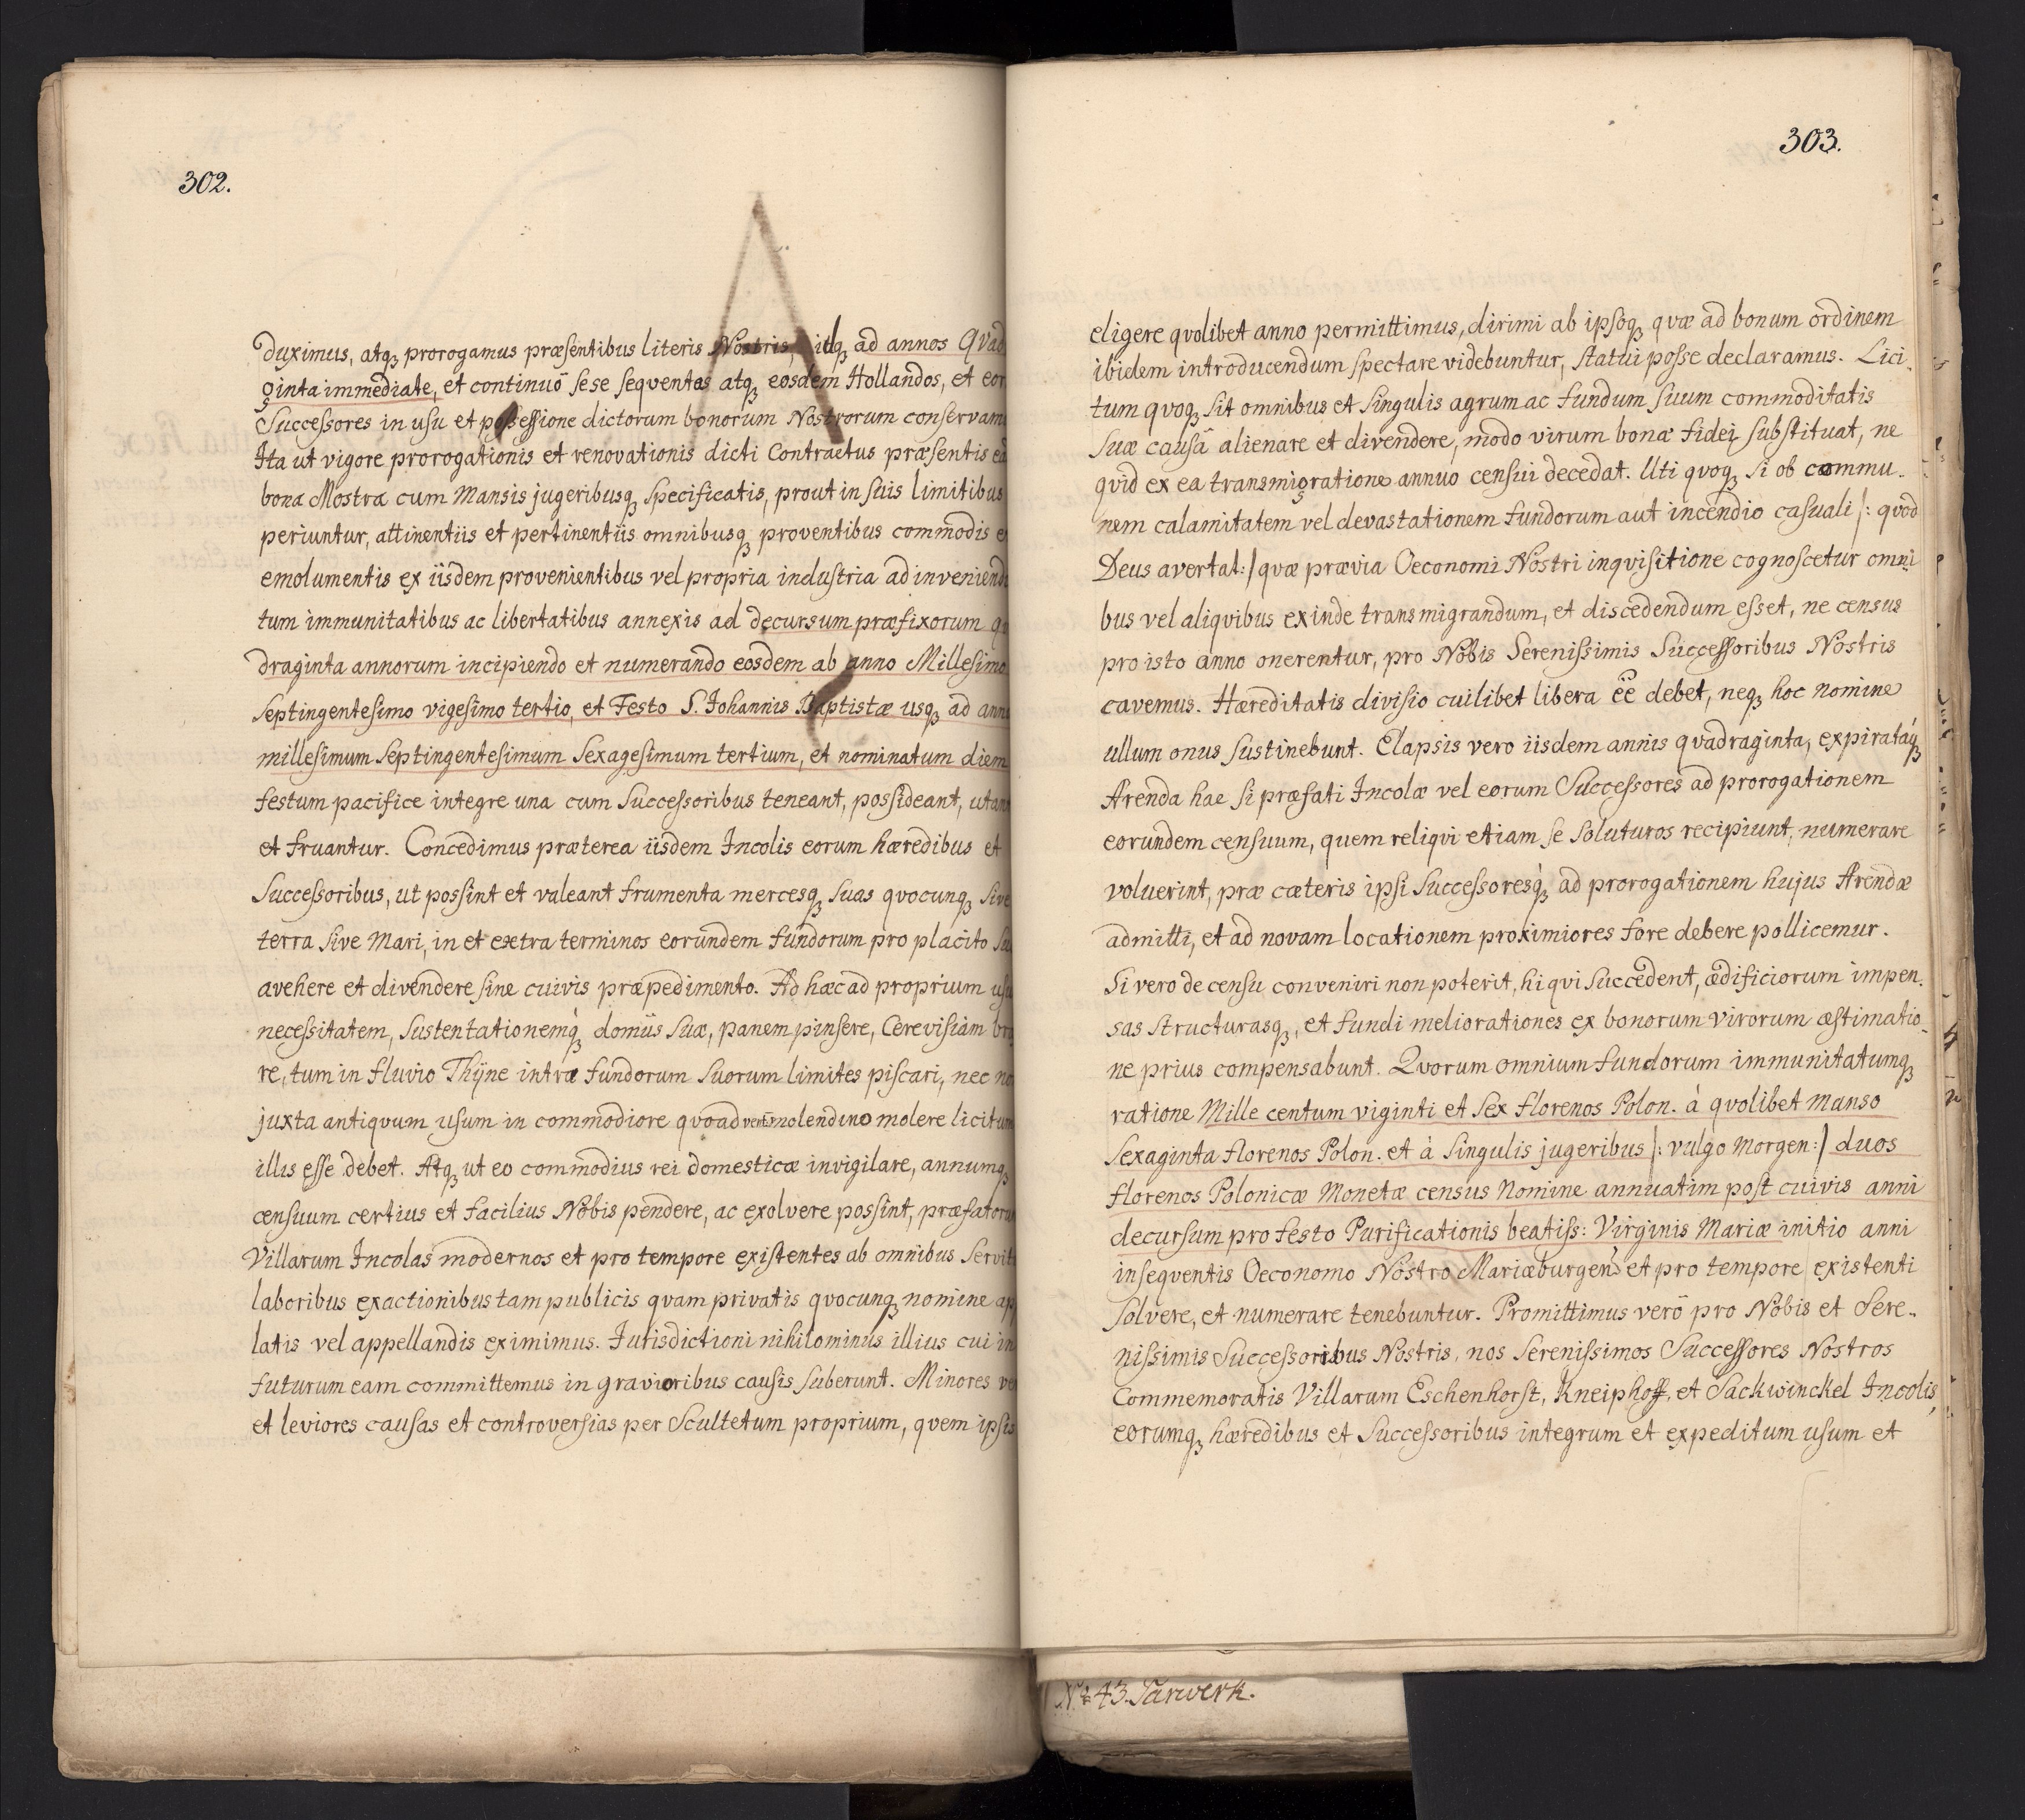 302.
duximus, atq3 prorogamus præsentibus literis Nostris, itaq3 ad annos Qvad
ginta immediate, et continuò sese seqventes atq3 eosdem Hollandos, et eor
Successores in usu et possessione dictorum bonorum Nostrorum conservam
Ita ut vigore prorogationis et renovationis dicti Contractus præsentis ea
bona Nostra cum Mansis jugeribusq3 specificatis, prout in suis limitibus
periuntur, attinentiis et pertinentiis omnibusq3 proventibus commodis e
emolumentis ex iisdem provenientibus vel propria industria ad inveniend
tum immunitatibus ac libertatibus annexis ad decursum præfixorum q
draginta annorum incipiendo et numerando eosdem ab anno Millesimo
Septingentesimo vigesimo tertio, et Festo S. Johannis Baptistæ usq3 ad ann
millesimum Septingentesimum Sexagesimum tertium, et nominatum diem
festum pacifice integre una cum Successoribus teneant, possideant, utan
et fruantur. Concedimus præterea iisdem Incolis eorum hæredibus et
Successoribus, ut possint et valeant frumenta mercesq3 suas qvocunq3 sive
terra sive Mari, in et extra terminos eorundem fundorum pro placito su
avehere et divendere sine cuivis præpedimento. Ad hæc ad proprium usu
necessitatem, sustentationemq3 domûs suæ, panem pinsere, Cerevisiam bra
re, tum in fluvio Thÿne intra fundorum suorum limites piscari, nec no
juxta antiqvum usum in commodiore qvoad molendino molere licitum
illis esse debet. Atq3 ut eo commodius rei domesticæ invigilare, annumq3
censuum certius et facilius Nobis pendere, ac exolvere possint, præfatoru
Villarum Incolas modernos et pro tempore existentes ab omnibus Servit
laboribus exactionibus tam publicis qvam privatis qvocunq3 nomine ap
latis vel appellandis eximimus. Jurisdictioni nihilominus illius cui in
futurum eam committemus in gravioribus causis suberunt. Minores ve
et leviores causas et controversias per Scultetum proprium, qvem ipsis
303.
eligere qvolibet anno permittimus, dirimi ab ipsoq3 qvæ ad bonum ordinem
ibidem introducendum spectare videbuntur, statui posse declaramus. Lici-
tum qvoq3 sit omnibus et singulis agrum ac fundum suum commoditatis
suæ causâ alienare et divendere, modo virum bonæ fidei substituat, ne
qvid ex ea transmigratione annuo censui decedat. Uti qvoq3 si ob commu-
nem calamitatem vel devastationem fundorum aut incendio casuali |: qvod
Deus avertat :| qvæ prævia Oeconomi Nostri inqvisitione cognoscetur omni
bus vel aliqvibus exinde transmigrandum, et discedendum esset, ne census
pro isto anno onerentur, pro Nobis Serenissimis Successoribus Nostris
cavemus. Hæreditatis divisio cuilibet libera ee͂ debet, neq3 hoc nomine
ullum onus sustinebunt. Elapsis vero iisdem annis qvadraginta, expiratáq3
Arenda hac si præfati Incolæ vel eorum Successores ad prorogationem
eorundem censuum, quem reliqvi etiam se soluturos recipiunt, numerare
voluerint, præ cæteris ipsi Successoresq́3 ad prorogationem hujus Arendæ
admitti, et ad novam locationem proximiores fore debere pollicemur.
Si vero de censu conveniri non poterit, hi qvi succedent, ædificiorum impen-
sas structurasq3, et fundi meliorationes ex bonorum virorum æstimatio-
ne prius compensabunt. Qvorum omnium fundorum immunitatumq3
ratione Mille centum viginti et sex florenos Polon. à qvolibet manso
Sexaginta florenos Polon. et à singulis jugeribus |: vulgo Morgen :| duos
florenos Polonicæ Monetæ census Nomine annuatim post cuivis anni
decursum pro festo Purificationis beatiss: Virginis Mariæ initio anni
inseqventis Oeconomo Nostro Mariæburgen̄ et pro tempore existenti
solvere, et numerare tenebuntur. Promittimus verò pro Nobis et Sere-
nissimis Successoribus Nostris, nos Serenissimos Successores Nostros
Commemoratis Villarum Eschenhorst, Kneiphoff, et Sackwinckel Incolis,
eorumq3 hæredibus et Successoribus integrum et expeditum usum et
43. Jarwerk.